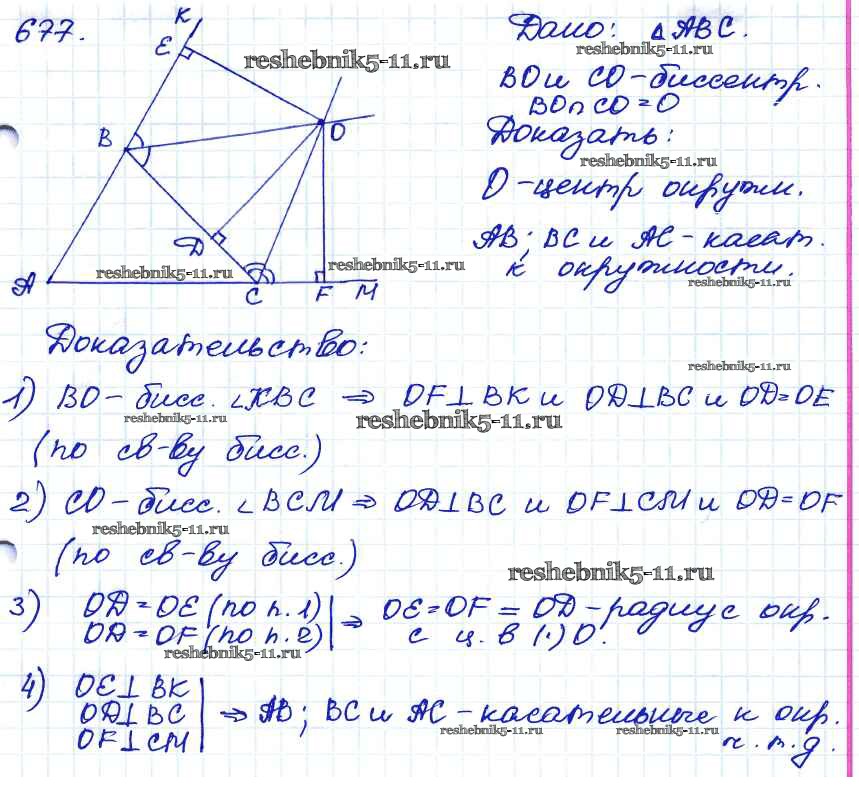 677.
K
E
B
O
D
A
C
F
M
reshebnik5-11.ru
reshebnik5-11.ru
reshebnik5-11.ru
Дано: △ABC.
BO и CO - биссектр.
BO∩CO=O
Доказать:
reshebnik5-11.ru
O - центр окружн.
AB; BC и AC - касат.
к окружности.
reshebnik5-11.ru
Доказательство:
reshebnik5-11.ru
1) BO - бисс. ∠KBC ⇒ OF⊥BK и OD⊥BC и OD=OE
reshebnik5-11.ru
reshebnik5-11.ru
(по св-ву бисс.)
2) CO - бисс. ∠BCM ⇒ OD⊥BC и OF⊥CM и OD=OF
reshebnik5-11.ru
(по св-ву бисс.)
reshebnik5-11.ru
3) OD=OE (по п. 1) | ⇒ OE=OF=OD - радиус окр.
OD=OF (по п. 2) | с ц. в (·) O.
reshebnik5-11.ru
4) OE⊥BK
OD⊥BC ⇒ AB; BC и AC - касательные к окр.
reshebnik5-11.ru
reshebnik5-11.ru
OF⊥CM
ч.т.д.